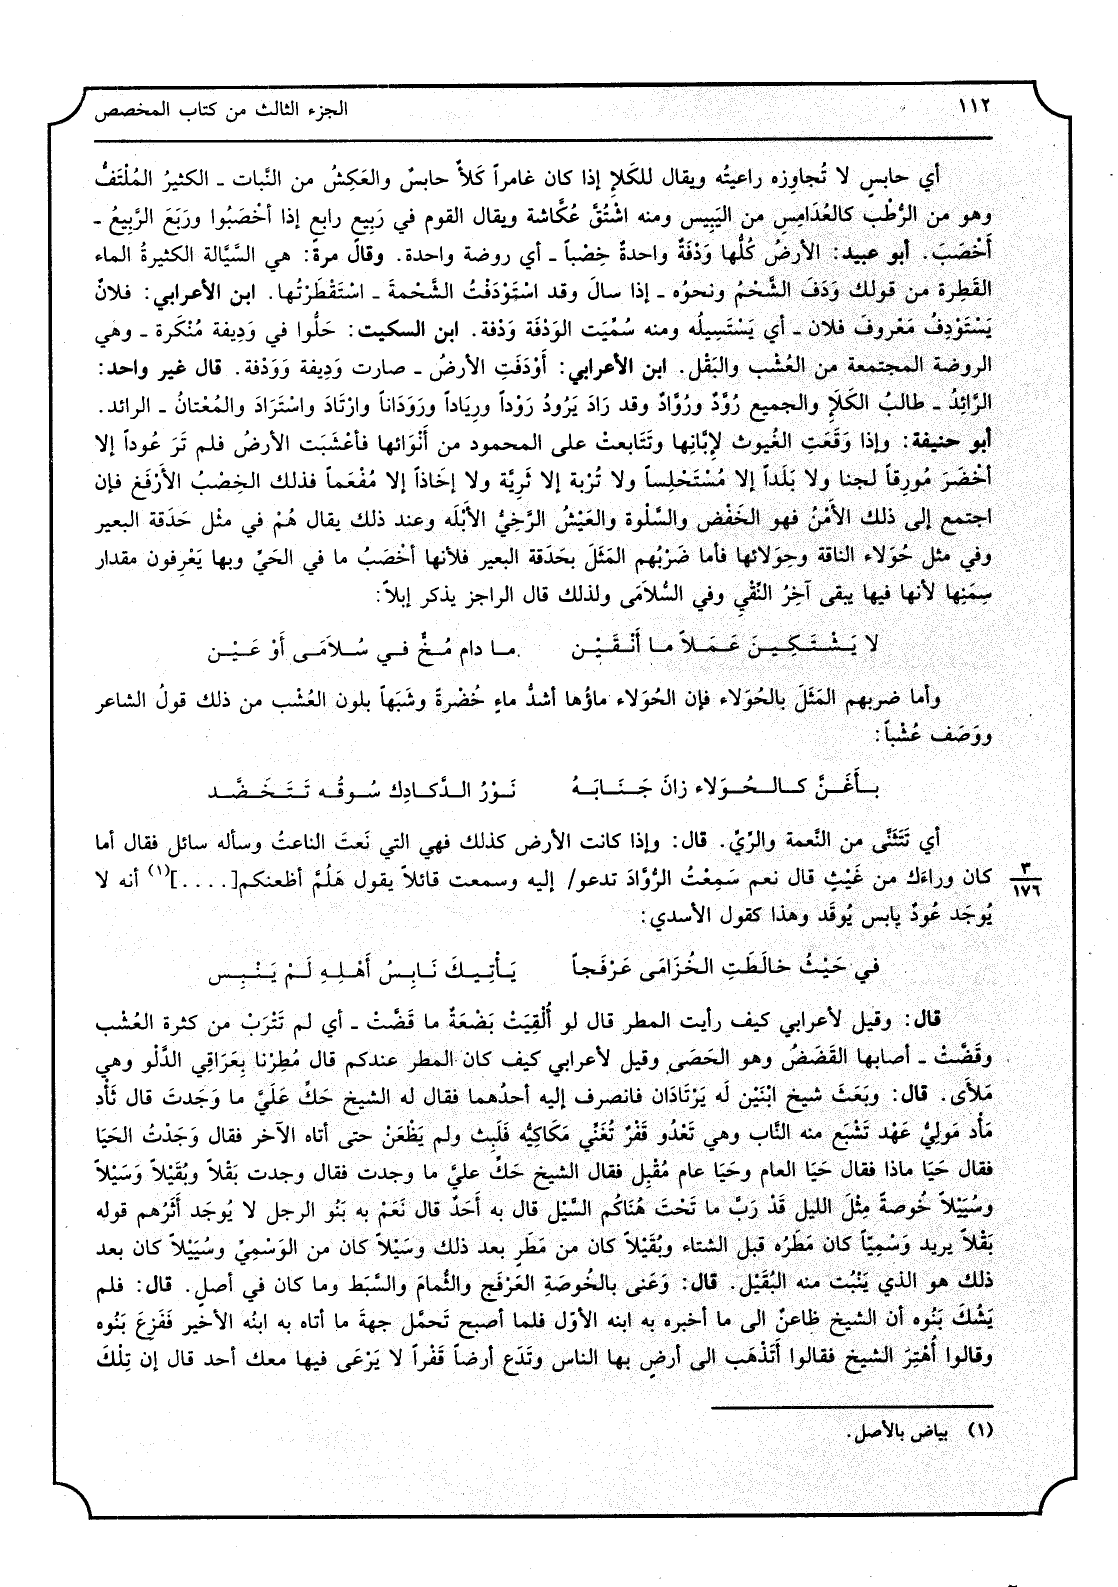 ١١٢ الجزء الثالث من كتاب المخصص
أي حابس لا تُجاوِزه راعيتُه ويقال للكَلإِ إذا كان غامراً كَلأٌ حابسٌ والعَكِشُ من النَّبات ـ الكثيرُ المُلْتَفُّ
وهو من الرُّطْب كالعُدَامِسِ من اليَبِيس ومنه اشْتُقَّ عُكَّاشة ويقال القوم في رَبِيع رابع إذا أخْصَبُوا ورَبَعَ الرَّبِيعُ ـ
أَخْصَبَ. أبو عبيد: الأرضُ كُلُّها وَدْفَةٌ واحدةٌ خِصْباً ـ أي روضة واحدة. وقال مرة: هي السَّيَّالة الكثيرةُ الماء
القَطِرة من قولك وَدَفَ الشَّحْمُ ونحوُه ـ إذا سالَ وقد اسْتَوْدَفْتُ الشَّحْمةَ ـ اسْتَقْطَرْتُها. ابن الأعرابي: فلانٌ
يَسْتَوْدِفُ مَعْروفَ فلان ـ أي يَسْتَسِيلُه ومنه سُمِّيَت الوَدْفَة وَدْفة. ابن السكيت: حَلُّوا في وَدِيفة مُنْكَرة ـ وهي
الروضة المجتمعة من العُشْب والبَقْل. ابن الأعرابي: أَوْدَفَتِ الأرضُ ـ صارت وَدِيفة وَوَدْفة. قال غير واحد:
الرَّائِدُ ـ طالبُ الكَلأِ والجميع رُوَّدٌ ورُوَّادٌ وقد رَادَ يَرُودُ رَوْداً ورِيَاداً ورَوَدَاناً وارْتَادَ واسْتَرَادَ والمُعْتانُ ـ الرائد.
أبو حنيفة: وإذا وَقَعَتِ الغُيوث لإِبَّانِها وتَتَابعتْ على المحمود من أَنْوَائها فأعْشَبَت الأرضُ فلم تَرَ عُوداً إلا
أخْضَرَ مُورِقاً لجنا ولا بَلَداً إلا مُسْتَحْلِساً ولا تُرْبة إلا ثَرِيَّة ولا إخَاذاً إلا مُفْعَماً فذلك الخِصْبُ الأَرْفَغ فإن
اجتمع إلى ذلك الأمْنُ فهو الخَفْض والسَّلْوة والعَيْشُ الرَّخِيُّ الأَبْلَه وعند ذلك يقال هُمْ في مثْل حَدَقة البعير
وفي مثل حُوَلاء الناقة وحِوَلائها فأما ضَرْبُهم المَثَلَ بحَدَقة البعير فلأنها أخْصَبُ ما في الحَيِّ وبها يَعْرِفون مقدار
سِمَنِها لأنها فيها يبقى آخِرُ النِّقْيِ وفي السُّلاَمَى ولذلك قال الراجز يذكر إبلاً:
لا يَشْتَكِينَ عَمَلاً ما أَنْقَيْن ما دام مُخٌّ في سُلاَمَى أَوْ عَيْن
وأما ضربهم المَثَلَ بالحُوَلاء فإن الحُوَلاء ماؤُها أشدُّ ماءٍ خُضْرةً وشَبَهاً بلون العُشْب من ذلك قولُ الشاعر
ووَصَف عُشْباً:
بأَغَنَّ كالحُوَلاء زانَ جَنَابَهُ نَوْرُ الدَّكادِك سُوقُه تَتَخَضَّد
أي تَتَثَنَّى من النَّعمة والرِّيِّ. قال: وإذا كانت الأرض كذلك فهي التي نَعتَ الناعتُ وسأله سائل فقال أما
كان وراءَك من غَيْثٍ قال نعم سَمِعْتُ الرُّوَّادَ تدعو/ إليه وسمعت قائلاً يقول هَلُمَّ أظعنكم[. . . .](١) أنه لا
٣
١٧٦
يُوجَد عُودٌ يابس يُوقَد وهذا كقول الأسدي:
في حَيْثُ خالَطَتِ الخُزَامَى عَرْفَجاً يَأْتِيكَ نَابِسُ أَهْلِهِ لَمْ يَنْبِس
قال: وقيل لأعرابي كيف رأيت المطر قال لو أُلْقِيَتْ بَضْعَةٌ ما قَضَّتْ ـ أي لم تَتْرَبْ من كثرة العُشْب
وقَضَّتْ ـ أصابها القَضَضُ وهو الحَصَى وقيل لأعرابي كيف كان المطر عندكم قال مُطِرْنا بِعَرَاقِي الدَّلْو وهي
مَلأَى. قال: وبَعَثَ شيخ ابْنَيْن لَه يَرْتَادَان فانصرف إليه أحدُهما فقال له الشيخ حَكِّ عَلَيَّ ما وَجَدتَ قال ثَأْد
مَأْد مَولِيُّ عَهْد تَشْبَع منه النَّاب وهي تَعْدُو قَفْرٌ تُغَنِّي مَكَاكِيُّه فَلَبِث ولم يَظْعَنْ حتى أتاه الآخر فقال وَجَدْتُ الحَيَا
فقال حَيَا ماذا فقال حَيَا العام وحَيَا عام مُقْبِل فقال الشيخ حَكِّ عليَّ ما وجدت فقال وجدت بَقْلاً وبُقَيْلاً وَسَيْلاً
وسُيَيْلاً خُوصةً مِثْلَ الليل قَدْ رَبَّ ما تَحْتَ هُنَاكُم السَّيْل قال به أَحَدٌ قال نَعَمْ به بَنُو الرجل لا يُوجَد أَثَرُهم قوله
بَقْلاً يريد وَسْمِيّاً كان مَطَرُه قبل الشتاء وبُقَيْلاً كان من مَطَرٍ بعد ذلك وسَيْلاً كان من الوَسْمِيِّ وسُيَيْلاً كان بعد
ذلك هو الذي يَنْبُت منه البُقَيْل. قال: وَعَنى بالخُوصَةِ العَرْفَج والثُّمامَ والسَّبَط وما كان في أصلٍ. قال: فلم
يَشُكَ بَنُوه أن الشيخ ظاعنٌ الى ما أخبره به ابنه الأوّل فلما أصبح تَحمَّل جهةَ ما أتاه به ابنُه الأخير فَفَزِعَ بَنُوه
وقالوا أُهْتِرَ الشيخ فقالوا أَتَذْهَب الى أرضٍ بها الناس وتَدَع أرضاً قَفْراً لا يَرْعَى فيها معك أحد قال إن تِلْكَ
(١) بياض بالأصل.